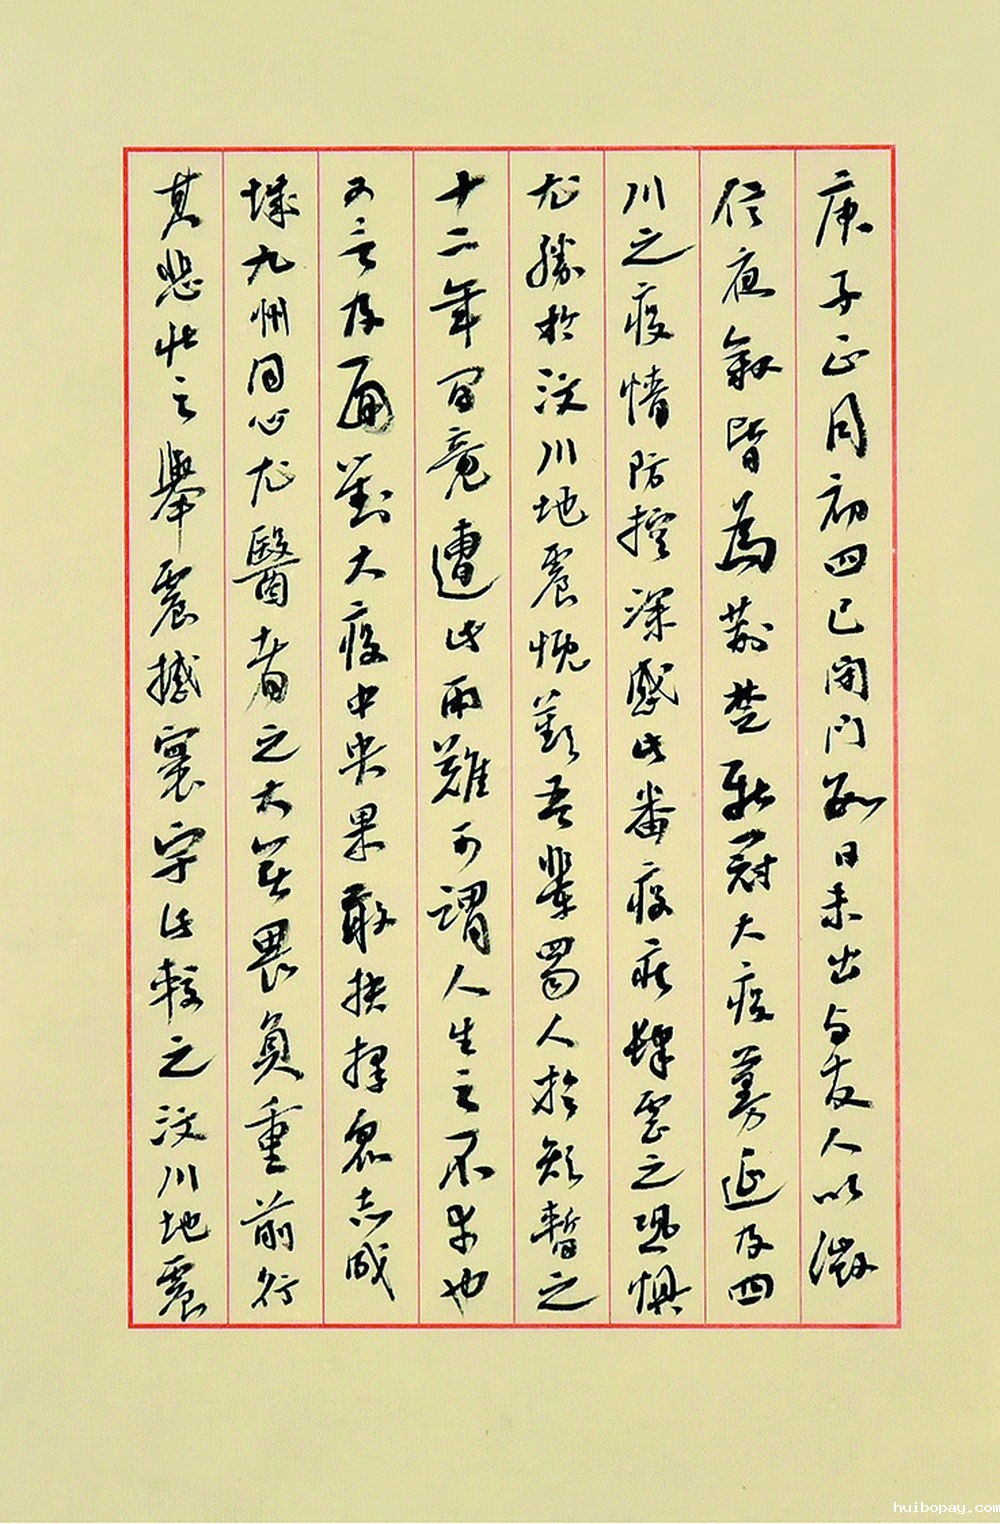 庚子正月初四已閉門數日未出与友人以微
信夜叙皆為荆楚新冠大疫蔓延及四
川之疫情防控深感此番疫症肆雲之恐懼
尤勝於汶川地震慨嘆吾輩蜀人於短暫之
十二年間竟遭此兩難可謂人生之不幸也
又言及面對大疫中央果敢抉擇眾志成
城九州同心尤醫者之大無畏負重前行
其悲壯之舉震撼寰宇此較之汶川地震
huibopay.com